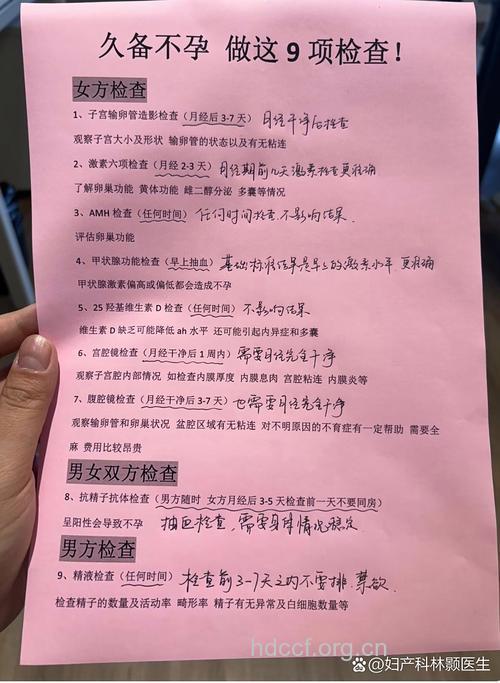 久备不孕 做这9项检查！
女方检查
1、子宫输卵管造影检查（月经后3-7天） 月经干净后检查
观察子宫大小及形状 输卵管的状态以及有无粘连
2、激素六项检查（月经2-3天） 月经期前几天激素检查更准确
了解卵巢功能 黄体功能 雌二醇分泌 多囊等情况
3、AMH检查（任何时间） 任何时间检查.不影响结果.
评估卵巢功能
4、甲状腺功能检查（早上抽血） 基础标准结果是早上的激素水平 更准确
甲状腺激素偏高或偏低都会造成不孕
5、25羟基维生素D检查（任何时间） 不影响结果
维生素D缺乏可能降低ah水平 还可能引起内异症和多囊
6、宫腔镜检查（月经干净后1周内） 需要月经完全干净
观察子宫腔内部情况 如检查内膜厚度 内膜息肉 宫腔粘连 内膜炎等
7、腹腔镜检查（月经干净后3-7天） 也需要月经完全干净
观察输卵管和卵巢状况 盆腔区域有无粘连 对不明原因的不育症有一定帮助 需要全
麻 费用比较昂贵
男女双方检查
8、抗精子抗体检查（男方随时 女方月经后3-5天检查前一天不要同房）
呈阳性会导致不孕 抽血检查，需要身体情况稳定
男方检查
9、精液检查（任何时间） 检查前3-7天之内不要排.禁欲.
检查精子的数量及活动率 畸形率 精子有无异常及白细胞数量等
hdccf.org.cn
百家号@妇产科林颢医生